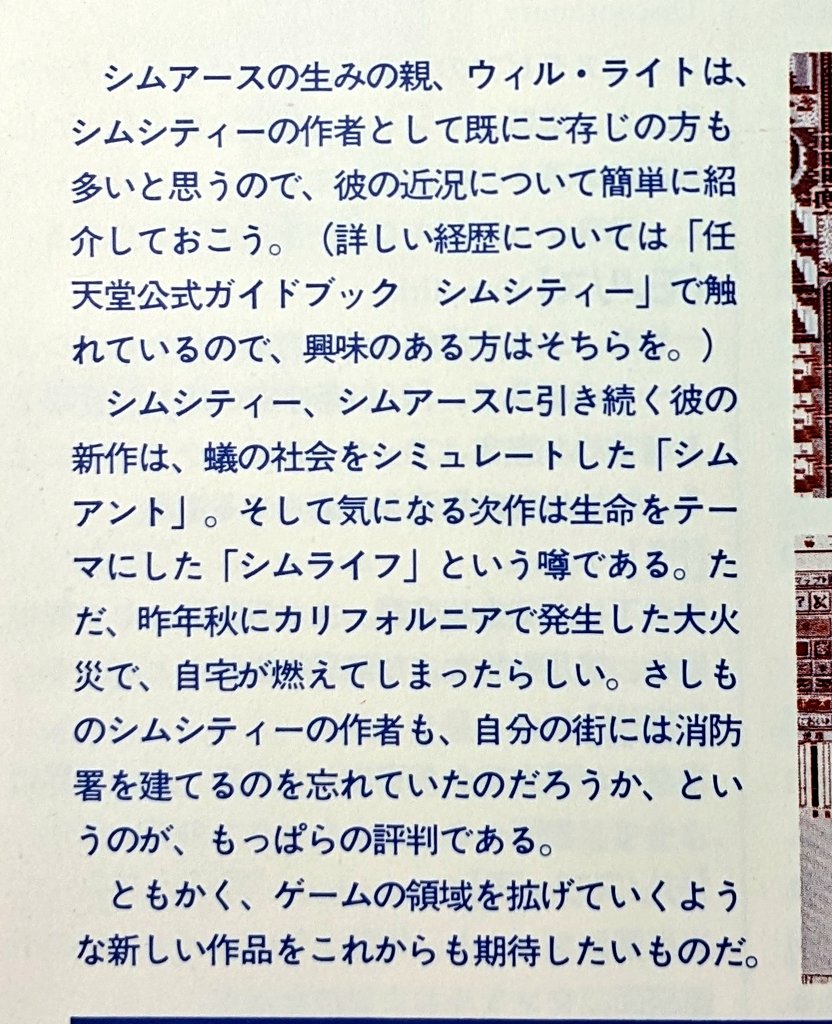 シムアースの生みの親、ウィル・ライトは、
シムシティーの作者として既にご存じの方も
多いと思うので、彼の近況について簡単に紹
介しておこう。（詳しい経歴については「任
天堂公式ガイドブック　シムシティー」で触
れているので、興味のある方はそちらを。）
　シムシティー、シムアースに引き続く彼の
新作は、蟻の社会をシミュレートした「シム
アント」。そして気になる次作は生命をテー
マにした「シムライフ」という噂である。た
だ、昨年秋にカリフォルニアで発生した大火
災で、自宅が燃えてしまったらしい。さしも
のシムシティーの作者も、自分の街には消防
署を建てるのを忘れていたのだろうか、とい
うのが、もっぱらの評判である。
　ともかく、ゲームの領域を拡げていくよう
な新しい作品をこれからも期待したいものだ。